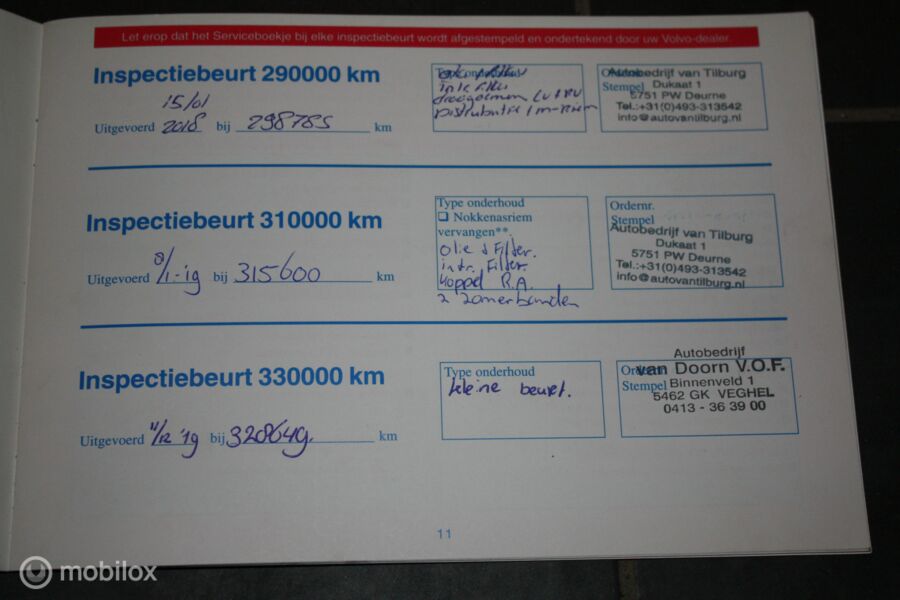 Let erop dat het Serviceboekje bij elke inspectiebeurt wordt afgestempeld en ondertekend door uw Volvo-dealer.
Inspectiebeurt 290000 km
15/01
Uitgevoerd 2018 bij 298785 km
Distributie / m-Riem
Autobedrijf van Tilburg
Stempel Dukaat 1
5751 PW Deurne
Tel.:+31(0)493-313542
info@autovantilburg.nl
Inspectiebeurt 310000 km
Uitgevoerd 8/1-19 bij 315600 km
Type onderhoud
❏ Nokkenasriem
vervangen**.
olie + Filter.
intr. Filter.
koppel R.A.
2 zomerbanden
Ordernr.
Stempel
Autobedrijf van Tilburg
Dukaat 1
5751 PW Deurne
Tel.:+31(0)493-313542
info@autovantilburg.nl
Inspectiebeurt 330000 km
Uitgevoerd 11/12 '19 bij 328649. km
Type onderhoud
kleine beurt.
Autobedrijf
van Doorn V.O.F.
Stempel Binnenveld 1
5462 GK VEGHEL
0413 - 36 39 00
11
mobilox